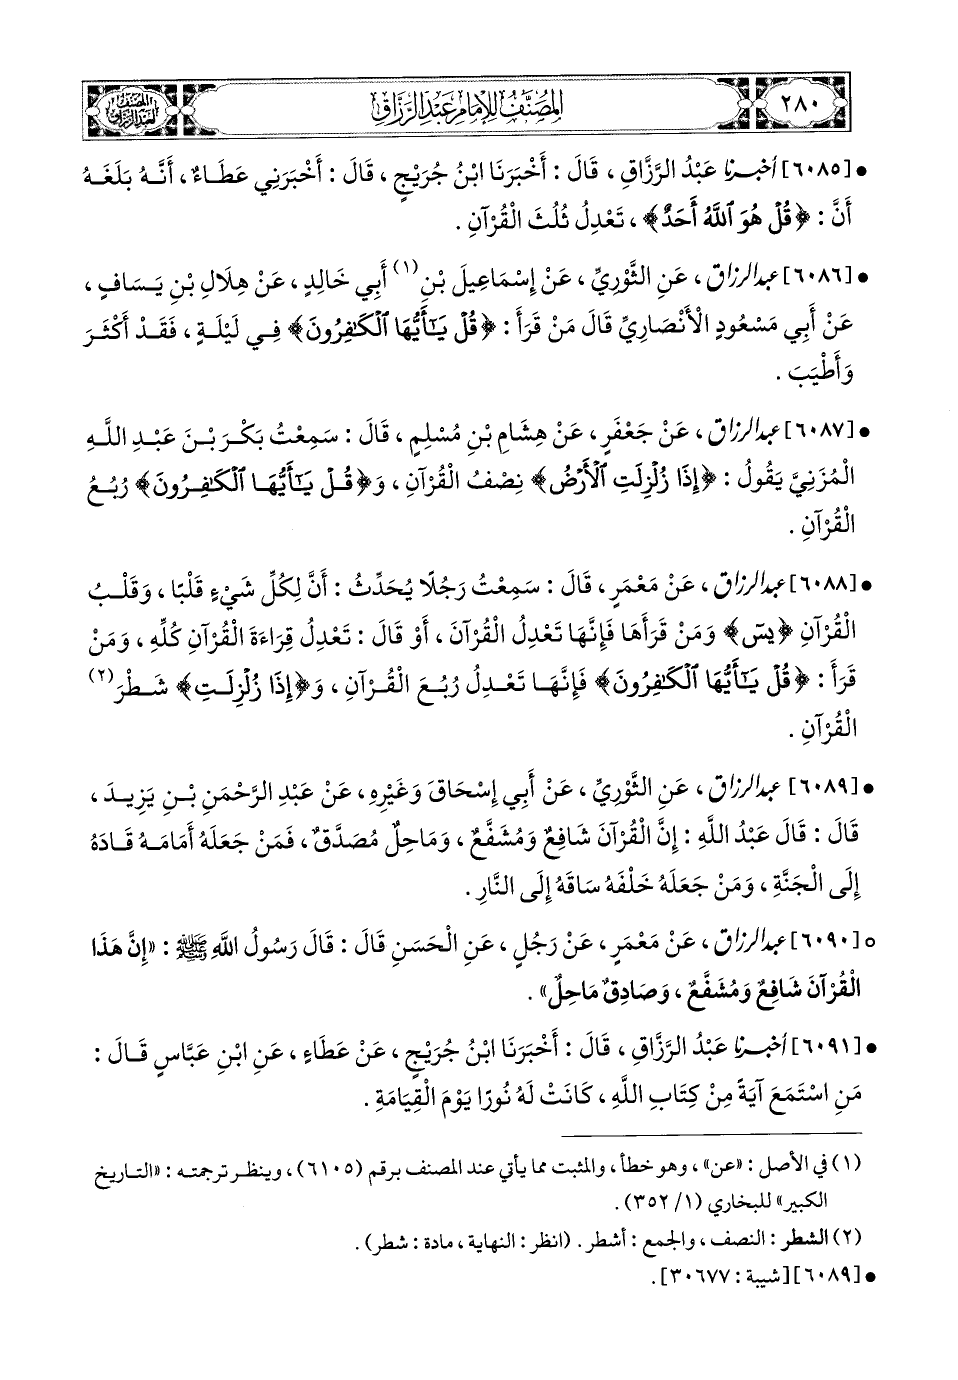 ٢٨٠
المصنف للإمام عبد الرزاق
المصنف لعبد الرزاق
• [٦٠٨٥] أخبرنا عَبْدُ الرَّزَّاقِ ، قَالَ : أَخْبَرَنَا ابْنُ جُرَيْجٍ ، قَالَ : أَخْبَرَنِي عَطَاءٌ ، أَنَّهُ بَلَغَهُ
أَنَّ : ﴿قُلْ هُوَ ٱللَّهُ أَحَدٌ﴾ ، تَعْدِلُ ثُلُثَ الْقُرْآنِ .
• [٦٠٨٦] عبد الرزاق ، عَنِ الثَّوْرِيِّ ، عَنْ إِسْمَاعِيلَ بْنِ(١) أَبِي خَالِدٍ ، عَنْ هِلَالِ بْنِ يَسَافٍ ،
عَنْ أَبِي مَسْعُودٍ الْأَنْصَارِيِّ قَالَ مَنْ قَرَأَ : ﴿قُلْ يَـٰٓأَيُّهَا ٱلْكَـٰفِرُونَ﴾ فِي لَيْلَةٍ ، فَقَدْ أَكْثَرَ
وَأَطْيَبَ .
• [٦٠٨٧] عبد الرزاق ، عَنْ جَعْفَرٍ ، عَنْ هِشَامِ بْنِ مُسْلِمٍ ، قَالَ : سَمِعْتُ بَكْرَ بْنَ عَبْدِ اللَّهِ
الْمُزَنِيَّ يَقُولُ : ﴿إِذَا زُلْزِلَتِ ٱلْأَرْضُ﴾ نِصْفُ الْقُرْآنِ ، وَ﴿قُلْ يَـٰٓأَيُّهَا ٱلْكَـٰفِرُونَ﴾ رُبُعُ
الْقُرْآنِ .
• [٦٠٨٨] عبد الرزاق ، عَنْ مَعْمَرٍ ، قَالَ : سَمِعْتُ رَجُلًا يُحَدِّثُ : أَنَّ لِكُلِّ شَيْءٍ قَلْبًا ، وَقَلْبُ
الْقُرْآنِ ﴿يسٓ﴾ وَمَنْ قَرَأَهَا فَإِنَّهَا تَعْدِلُ الْقُرْآنَ ، أَوْ قَالَ : تَعْدِلُ قِرَاءَةَ الْقُرْآنِ كُلِّهِ ، وَمَنْ
قَرَأَ : ﴿قُلْ يَـٰٓأَيُّهَا ٱلْكَـٰفِرُونَ﴾ فَإِنَّهَا تَعْدِلُ رُبُعَ الْقُرْآنِ ، وَ﴿إِذَا زُلْزِلَتِ﴾ شَطْرَ(٢)
الْقُرْآنِ .
• [٦٠٨٩] عبد الرزاق ، عَنِ الثَّوْرِيِّ ، عَنْ أَبِي إِسْحَاقَ وَغَيْرِهِ ، عَنْ عَبْدِ الرَّحْمَنِ بْنِ يَزِيدَ ،
قَالَ : قَالَ عَبْدُ اللَّهِ : إِنَّ الْقُرْآنَ شَافِعٌ وَمُشَفَّعٌ ، وَمَاحِلٌ مُصَدَّقٌ ، فَمَنْ جَعَلَهُ أَمَامَهُ قَادَهُ
إِلَى الْجَنَّةِ ، وَمَنْ جَعَلَهُ خَلْفَهُ سَاقَهُ إِلَى النَّارِ .
○ [٦٠٩٠] عبد الرزاق ، عَنْ مَعْمَرٍ ، عَنْ رَجُلٍ ، عَنِ الْحَسَنِ قَالَ : قَالَ رَسُولُ اللَّهِ ﷺ : «إِنَّ هَذَا
الْقُرْآنَ شَافِعٌ وَمُشَفَّعٌ ، وَصَادِقٌ مَاحِلٌ» .
• [٦٠٩١] أخبرنا عَبْدُ الرَّزَّاقِ ، قَالَ : أَخْبَرَنَا ابْنُ جُرَيْجٍ ، عَنْ عَطَاءٍ ، عَنِ ابْنِ عَبَّاسٍ قَالَ :
مَنِ اسْتَمَعَ آيَةً مِنْ كِتَابِ اللَّهِ ، كَانَتْ لَهُ نُورًا يَوْمَ الْقِيَامَةِ .
(١) في الأصل : «عن» ، وهو خطأ ، والمثبت مما يأتي عند المصنف برقم (٦١٠٥) ، وينظر ترجمته : «التاريخ
الكبير» للبخاري (١/ ٣٥٢) .
(٢) الشطر : النصف ، والجمع : أشطر . (انظر : النهاية ، مادة : شطر) .
• [٦٠٨٩] [شيبة : ٣٠٦٧٧] .